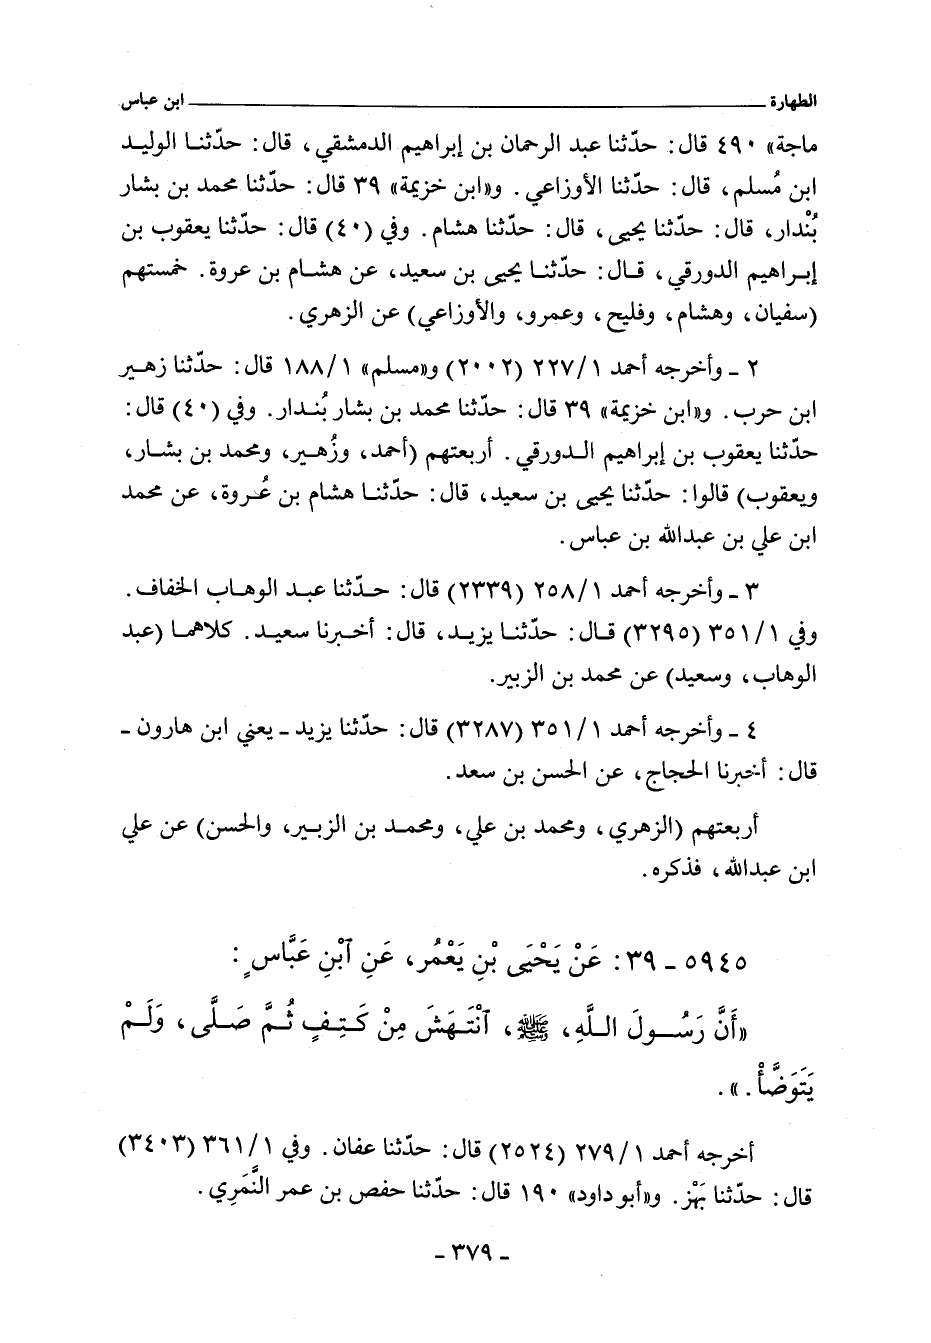 الطهارة ــــــــــــــــــــ ابن عباس
ماجة» ٤٩٠ قال: حدّثنا عبد الرحمان بن إبراهيم الدمشقي، قال: حدّثنا الوليد
ابن مُسلم، قال: حدّثنا الأوزاعي. و«ابن خزيمة» ٣٩ قال: حدّثنا محمد بن بشار
بُنْدار، قال: حدّثنا يحيى، قال: حدّثنا هشام. وفي (٤٠) قال: حدّثنا يعقوب بن
إبراهيم الدورقي، قال: حدّثنا يحيى بن سعيد، عن هشام بن عروة. خمستهم
(سفيان، وهشام، وفليح، وعمرو، والأوزاعي) عن الزهري.
٢ ـ وأخرجه أحمد ٢٢٧/١ (٢٠٠٢) و«مسلم» ١٨٨/١ قال: حدّثنا زهير
ابن حرب. و«ابن خزيمة» ٣٩ قال: حدّثنا محمد بن بشار بُندار. وفي (٤٠) قال:
حدّثنا يعقوب بن إبراهيم الدورقي. أربعتهم (أحمد، وزُهير، ومحمد بن بشار،
ويعقوب) قالوا: حدّثنا يحيى بن سعيد، قال: حدّثنا هشام بن عُروة، عن محمد
ابن علي بن عبدالله بن عباس.
٣ ـ وأخرجه أحمد ٢٥٨/١ (٢٣٣٩) قال: حدّثنا عبد الوهاب الخفاف.
وفي ٣٥١/١ (٣٢٩٥) قال: حدّثنا يزيد، قال: أخبرنا سعيد. كلاهما (عبد
الوهاب، وسعيد) عن محمد بن الزبير.
٤ ـ وأخرجه أحمد ٣٥١/١ (٣٢٨٧) قال: حدّثنا يزيد ـ يعني ابن هارون ـ
قال: أخبرنا الحجاج، عن الحسن بن سعد.
أربعتهم (الزهري، ومحمد بن علي، ومحمد بن الزبير، والحسن) عن علي
ابن عبدالله، فذكره.
٥٩٤٥ ـ ٣٩: عَنْ يَحْيَى بْنِ يَعْمُر، عَنِ ٱبْنِ عَبَّاسٍ:
«أَنَّ رَسُولَ اللَّهِ، ﷺ، ٱنْتَهَشَ مِنْ كَتِفٍ ثُمَّ صَلَّى، وَلَمْ
يَتَوَضَّأْ.».
أخرجه أحمد ٢٧٩/١ (٢٥٢٤) قال: حدّثنا عفان. وفي ٣٦١/١ (٣٤٠٣)
قال: حدّثنا بَهْز. و«أبو داود» ١٩٠ قال: حدّثنا حفص بن عمر النَّمَرِي.
ـ ٣٧٩ ـ